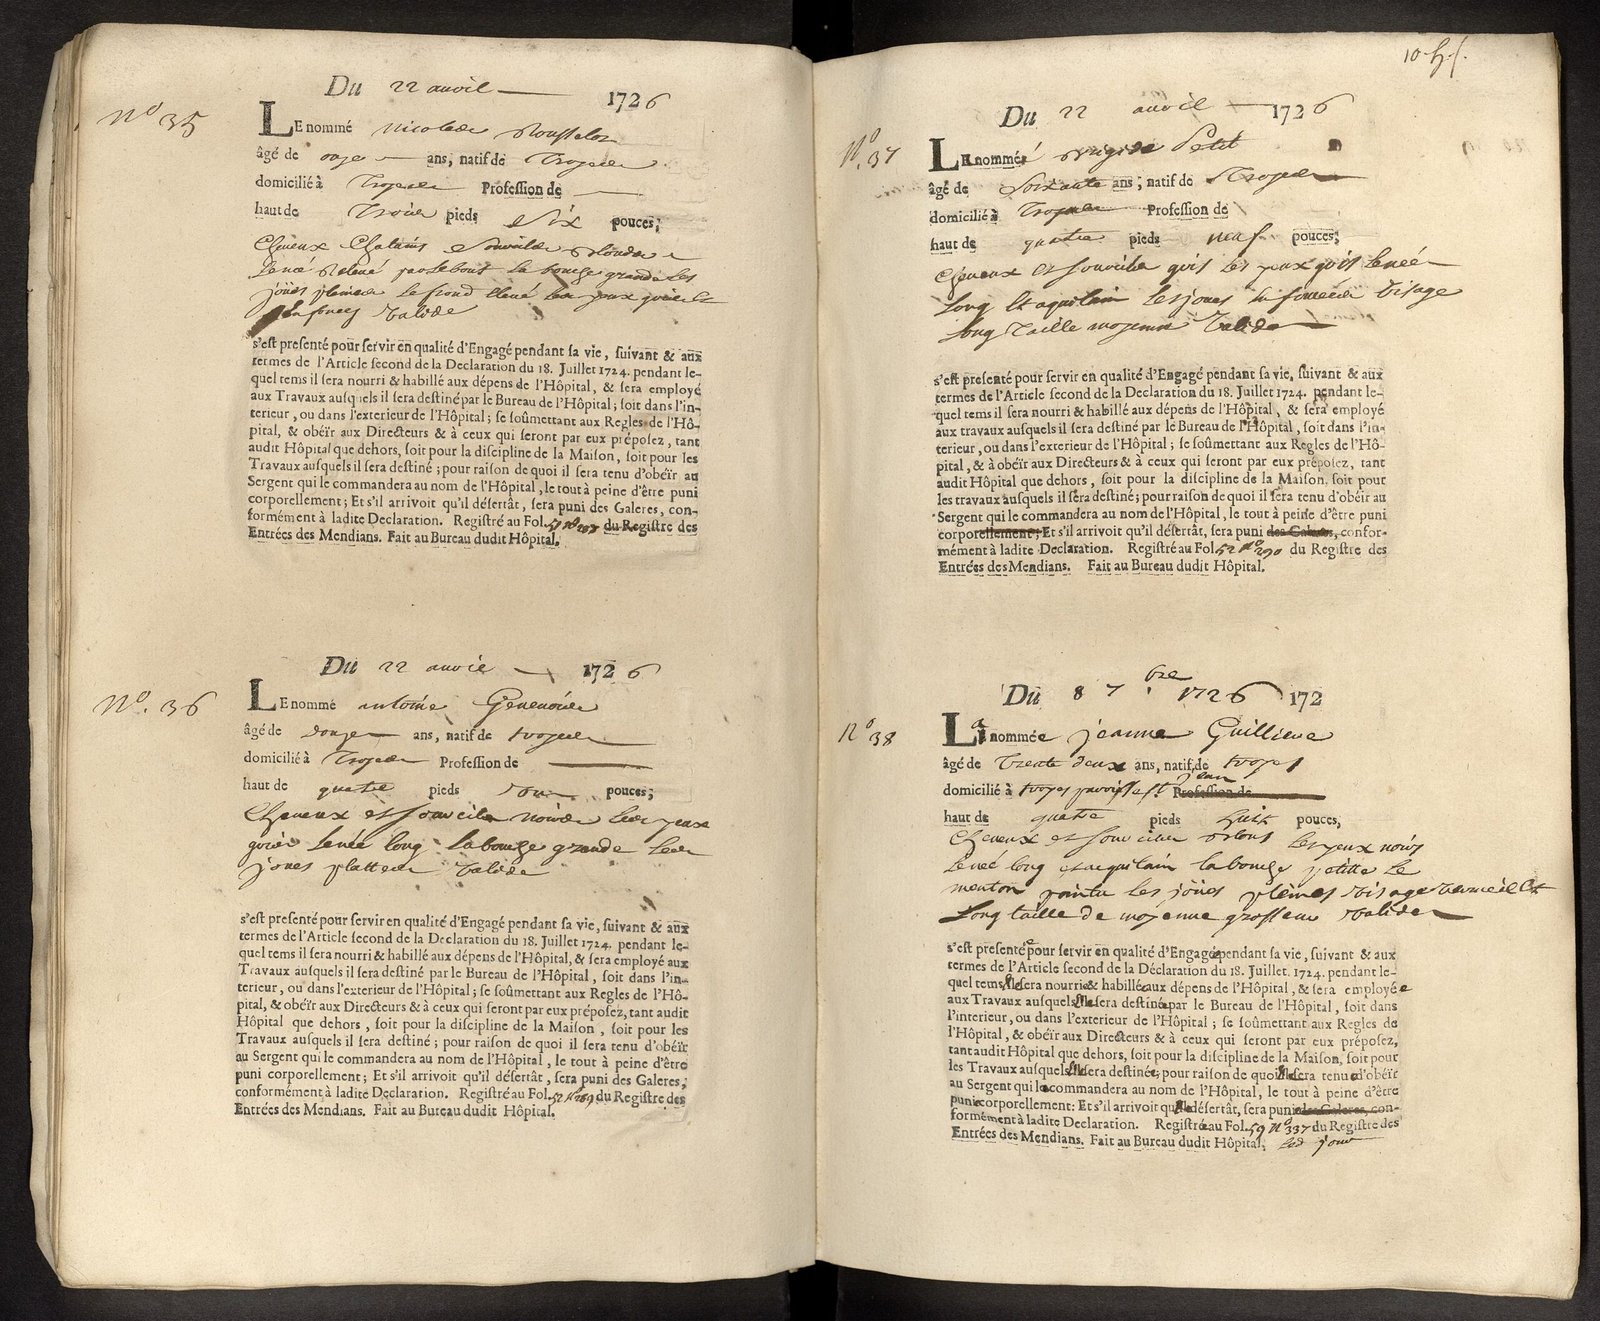 Du 22 avril 1726
No 35
LE nommé nicolas Rousselot
âgé de onze ans, natif de Troyes
domicilié à Troyes Profession de
haut de Trois pieds Six pouces;
Cheveux Chatains et Sourcils blonds
le né Relevé par le bout la bouche grande les
joües pleines le front elevé les yeux gris et
enfoncez valide
s'est presenté pour servir en qualité d'Engagé pendant sa vie, suivant & aux
termes de l'Article second de la Declaration du 18. Juillet 1724. pendant le-
quel tems il sera nourri & habillé aux dépens de l'Hôpital, & sera employé
aux Travaux ausquels il sera destiné par le Bureau de l'Hôpital; soit dans l'in-
terieur, ou dans l'exterieur de l'Hôpital; se soûmettant aux Regles de l'Hô-
pital, & obéïr aux Directeurs & à ceux qui seront par eux préposez, tant
audit Hôpital que dehors, soit pour la discipline de la Maison, soit pour les
Travaux ausquels il sera destiné; pour raison de quoi il sera tenu d'obéïr au
Sergent qui le commandera au nom de l'Hôpital, le tout à peine d'être puni
corporellement; Et s'il arrivoit qu'il désertât, sera puni des Galeres, con-
formément à ladite Declaration. Registré au Fol. du Registre des
Entrées des Mendians. Fait au Bureau dudit Hôpital.
Du 22 avril 1726
No. 36
LE nommé antoine
âgé de douze ans, natif de troyes
domicilié à Troyes Profession de
haut de quatre pieds pouces;
Cheveux et sourcils noirs les yeux
gris le né long la bouche grande les
joues plattes valide
s'est presenté pour servir en qualité d'Engagé pendant sa vie, suivant & aux
termes de l'Article second de la Declaration du 18. Juillet 1724. pendant le-
quel tems il sera nourri & habillé aux dépens de l'Hôpital, & sera employé aux
Travaux ausquels il sera destiné par le Bureau de l'Hôpital, soit dans l'in-
terieur, ou dans l'exterieur de l'Hôpital; se soûmettant aux Regles de l'Hô-
pital, & obéïr aux Directeurs & à ceux qui seront par eux préposez, tant audit
Hôpital que dehors, soit pour la discipline de la Maison, soit pour les
Travaux ausquels il sera destiné; pour raison de quoi il sera tenu d'obéïr
au Sergent qui le commandera au nom de l'Hôpital, le tout à peine d'être
puni corporellement; Et s'il arrivoit qu'il désertât, sera puni des Galeres,
conformément à ladite Declaration. Registré au Fol. 52 No 289 du Registre des
Entrées des Mendians. Fait au Bureau dudit Hôpital.
Du 22 avril 1726
No. 37
La nommée Brigide Petit
âgé de Soixante ans, natif de Troyes
domicilié à Troyes Profession de
haut de quatre pieds neuf pouces;
Cheveux et sourcils gris les yeux gris le né
long et aquilain les joues enfoncées visage
long taille moyenne valide
s'est presenté pour servir en qualité d'Engagé pendant sa vie, suivant & aux
termes de l'Article second de la Declaration du 18. Juillet 1724. pendant le-
quel tems il sera nourri & habillé aux dépens de l'Hôpital, & sera employé
aux travaux ausquels il sera destiné par le Bureau de l'Hôpital, soit dans l'in-
terieur, ou dans l'exterieur de l'Hôpital; se soûmettant aux Regles de l'Hô-
pital, & à obéïr aux Directeurs & à ceux qui seront par eux préposez, tant
audit Hôpital que dehors, soit pour la discipline de la Maison, soit pour
les travaux ausquels il sera destiné; pour raison de quoi il sera tenu d'obéïr au
Sergent qui le commandera au nom de l'Hôpital, le tout à peine d'être puni
corporellement; Et s'il arrivoit qu'il désertât, sera puni des Galeres, confor-
mément à ladite Declaration. Registré au Fol. 52 No 290 du Registre des
Entrées des Mendians. Fait au Bureau dudit Hôpital.
Du 8 7bre 1726 172
No 38
La nommée jeanne Guilliere
âgé de Trente deux ans, natif de troyes
domicilié à troyes paroisse St jean Profession de
haut de quatre pieds huit pouces,
Cheveux et sourcils blons les yeux noirs
le né long et aquilain la bouche petitte le
menton pointu les joües pleines visage vermeil et
Long taille de moyenne grosseur valide
s'est presentée pour servir en qualité d'Engagée pendant sa vie, suivant & aux
termes de l'Article second de la Déclaration du 18. Juillet. 1724. pendant le-
quel tems elle sera nourrie & habillée aux dépens de l'Hôpital, & sera employée
aux Travaux ausquels elle sera destinée par le Bureau de l'Hôpital, soit dans
l'interieur, ou dans l'exterieur de l'Hôpital; se soûmettant aux Regles de
l'Hôpital, & obéïr aux Directeurs & à ceux qui seront par eux préposez,
tant audit Hôpital que dehors, soit pour la discipline de la Maison, soit pour
les Travaux ausquels elle sera destinée; pour raison de quoi elle sera tenue d'obéïr
au Sergent qui le commandera au nom de l'Hôpital, le tout à peine d'être
punie corporellement: Et s'il arrivoit qu'elle désertât, sera punie des Galeres, con-
formément à ladite Declaration. Registrée au Fol. 59 No 337 du Registre des
Entrées des Mendians. Fait au Bureau dudit Hôpital, led jour